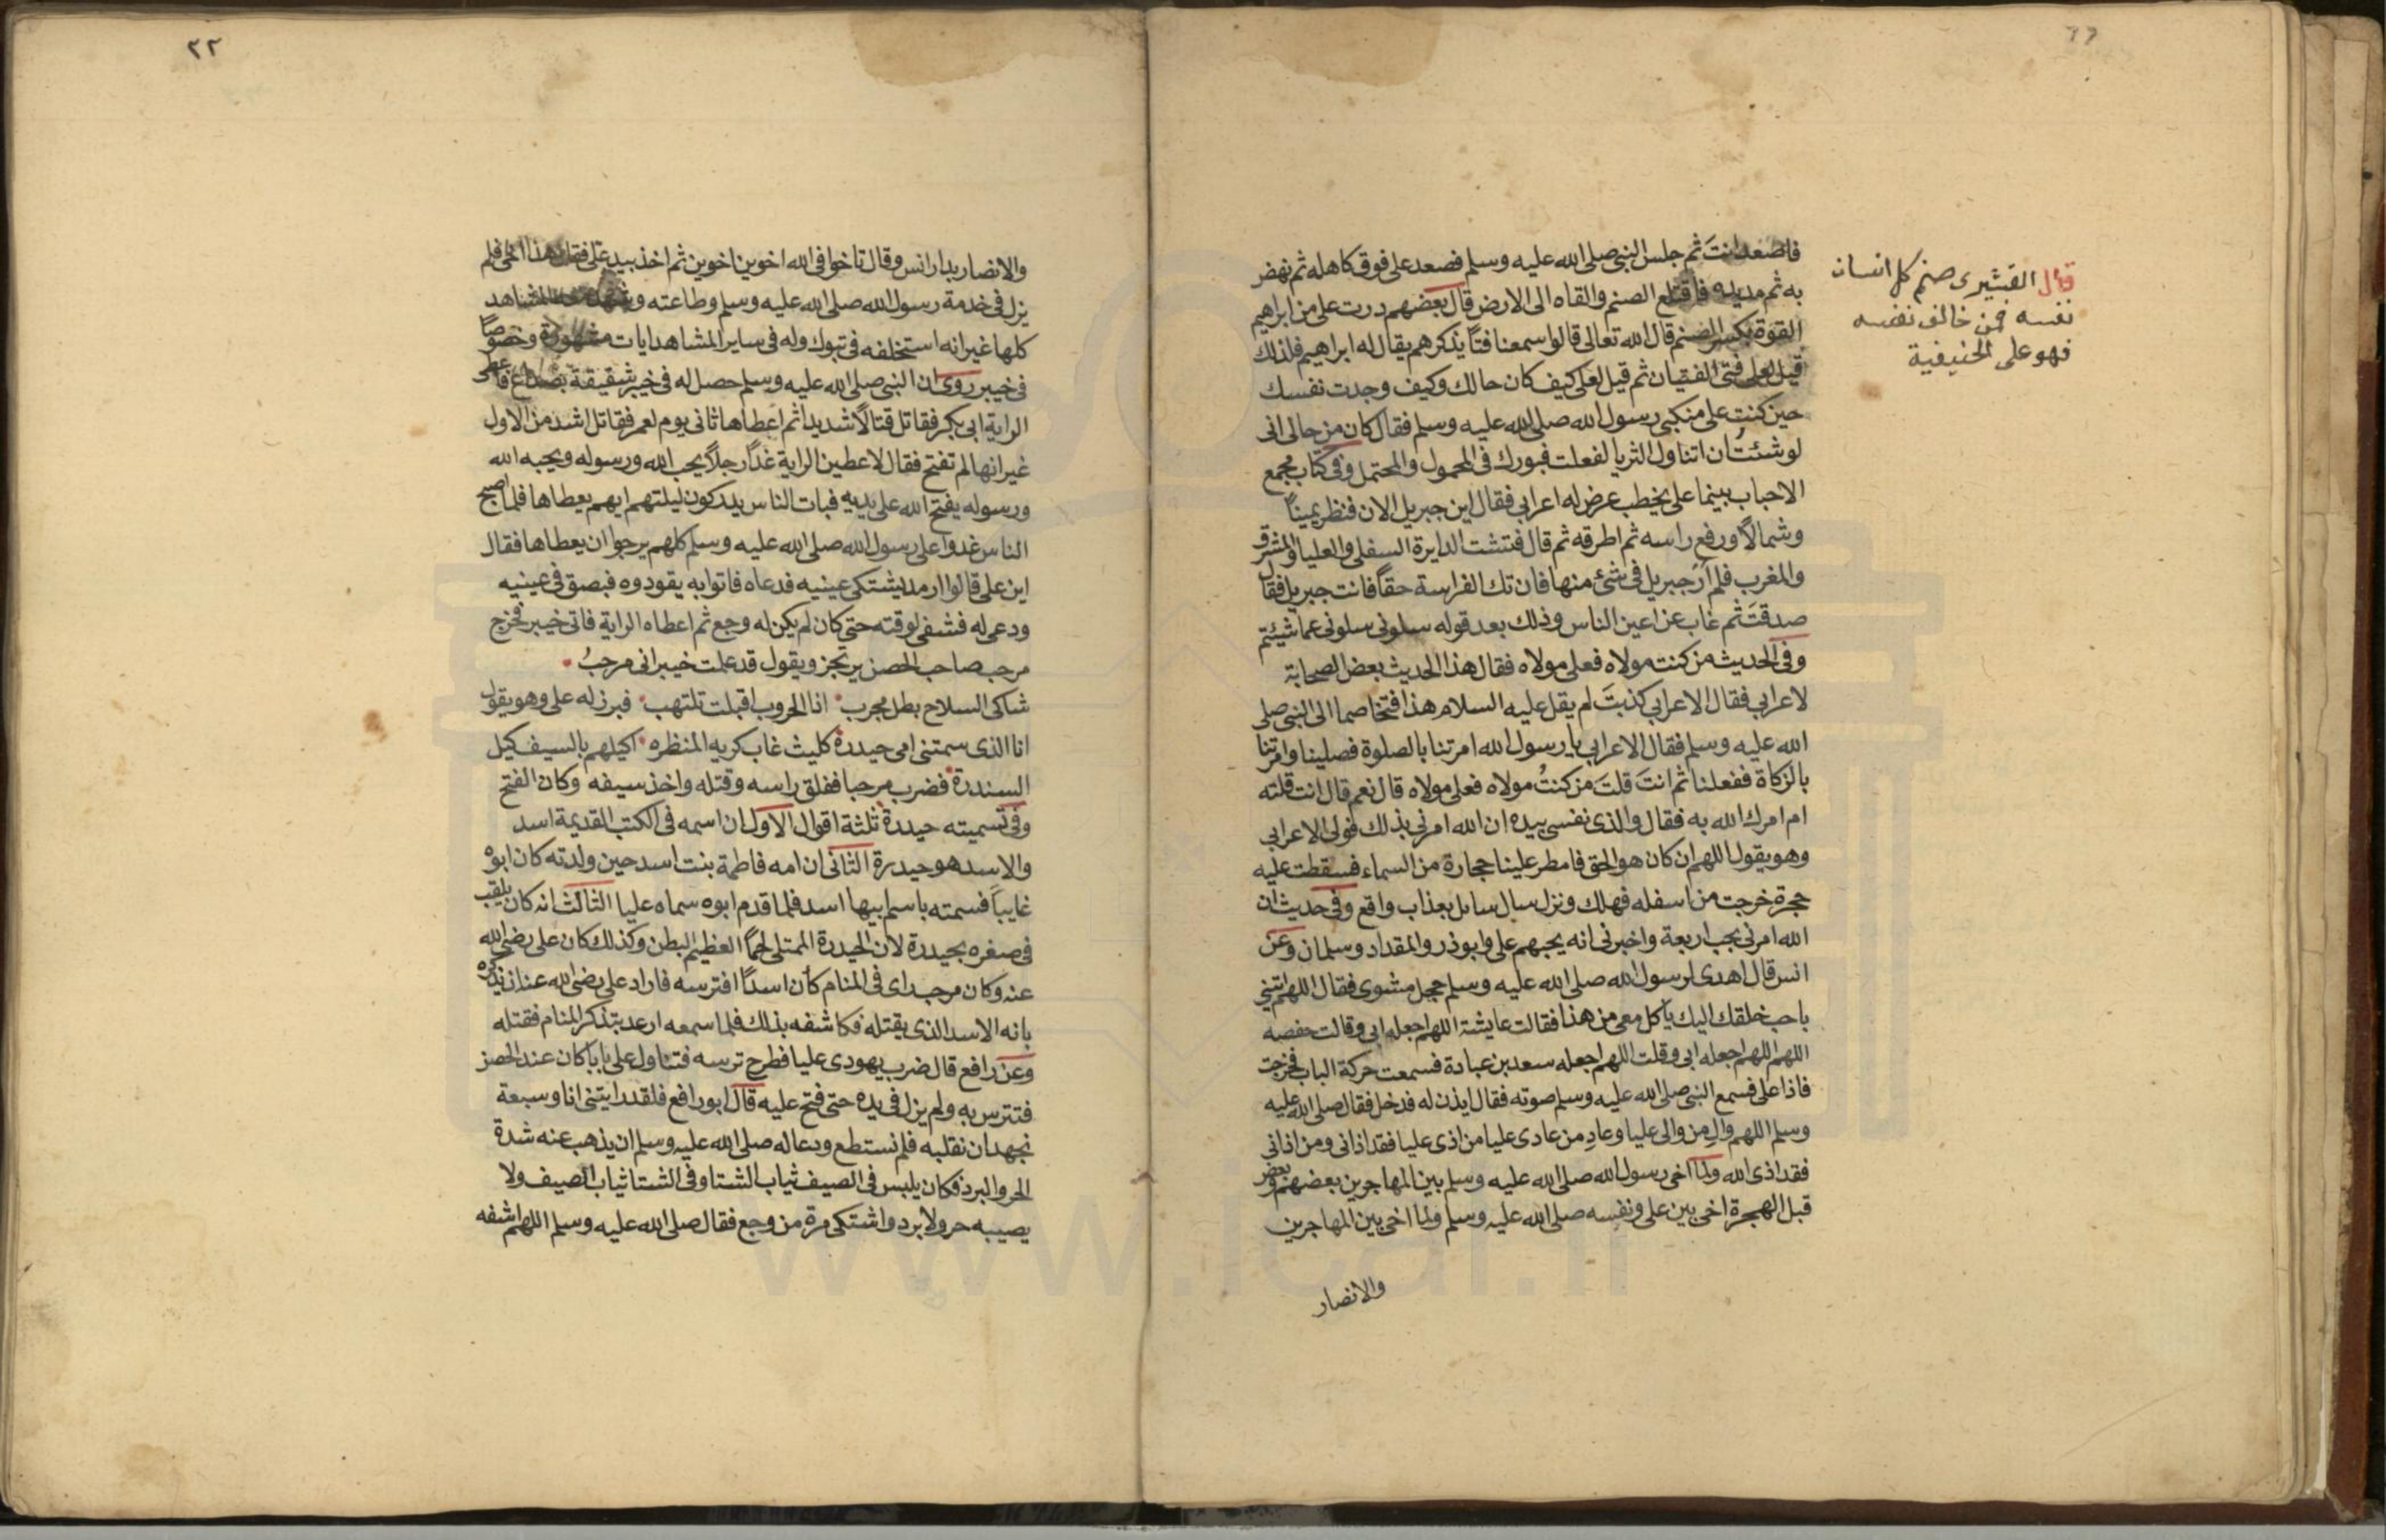 فاصعد انتَ ثم جلس النبى صلى الله عليه وسلم فصعد على فوق كاهله ثم نهض
به ثم مد يده فاقتلع الصنم والقاه الى الارض قال بعضهم درت على من ابراهيم
القوة بكسر الصنم قال الله تعالى قالوا سمعنا فتًا يذكرهم يقال له ابراهيم فلذلك
قيل لعلى فتى الفتيان ثم قيل لعلى كيف كان حالك وكيف وجدت نفسك
حين كنت على منكبى رسول الله صلى الله عليه وسلم فقال كان من حالى انى
لو شئتُ ان اتناول الثريا لفعلت فبورك فى المحمول والمحتمل وفى كتاب مجمع
الاحباب بينما على يخطب عرض له اعرابى فقال اين جبريل الان فنظر يمينًا
وشمالًا ورفع راسه ثم اطرقه ثم قال فتشت الدايرة السفلى والعليا والمشرق
والمغرب فلم ارَ جبريل فى شئ منها فان تك الفراسة حقًا فانت جبريل فقال
صدقتَ ثم غاب عن اعين الناس وذلك بعد قوله سلونى سلونى عما شيئتم
وفى الحديث من كنت مولاه فعلى مولاه فقال هذا الحديث بعض الصحابة
لاعرابى فقال الاعرابى كذبتَ لم يقل عليه السلام هذا فتخاصما الى النبى صلى
الله عليه وسلم فقال الاعرابى يا رسول الله امرتنا بالصلوة فصلينا وامرتنا
بالزكاة ففعلنا ثم انتَ قلتَ من كنتُ مولاه فعلى مولاه قال نعم قال انت قلته
ام امرك الله به فقال والذى نفسى بيده ان الله امرنى بذلك فولى الاعرابى
وهو يقول اللهم ان كان هو الحق فامطر علينا حجارة من السماء فسقطت عليه
حجرة خرجت من اسفله فهلك ونزل سال سايل بعذاب واقع وفى حديث ان
الله امرنى بحب اربعة واخبرنى انه يحبهم على وابوذر والمقداد وسلمان وعن
انس قال اهدى لرسول الله صلى الله عليه وسلم حجل مشوى فقال اللهم اتينى
باحب خلقك اليك ياكل معى من هذا فقالت عايشة اللهم اجعله ابى وقالت حفصه
اللهم اللهم اجعله ابى وقلت اللهم اجعله سعد بن عبادة فسمعت حركة الباب فخرجت
فاذا على فسمع النبى صلى الله عليه وسلم صوته فقال ايذن له فدخل فقال صلى الله عليه
وسلم اللهم والِ من والى عليا وعادِ من عادى عليا من اذى عليا فقد اذانى ومن اذانى
فقد اذى الله ولما اخى رسول الله صلى الله عليه وسلم بين المهاجرين بعضهم وبعض
قبل الهجرة اخى بين على ونفسه صلى الله عليه وسلم ولما اخى بين المهاجرين
والانصار
قال القشيرى صنم كل انسان
نفسه فمن خالف نفسه
فهو على الحنيفية
٢٢
والانصار بدار انس وقال تاخوا فى الله اخوين اخوين ثم اخذ بيد على فقال هذا اخى فلم
يزل فى خدمة رسول الله صلى الله عليه وسلم وطاعته وشهد معه المشاهد
كلها غير انه استخلفه فى تبوك وله فى ساير المشاهد ايات مشهورة وخصوصًا
فى خيبر روى ان النبى صلى الله عليه وسلم حصل له فى خيبر شقيقة بصداع فاعطى
الراية ابى بكر فقاتل قتالًا شديدا ثم اعطاها ثانى يوم لعمر فقاتل اشد من الاول
غير انها لم تفتح فقال لاعطين الراية غدًا رجلًا يحب الله ورسوله ويحبه الله
ورسوله يفتح الله على يديه فبات الناس يدكون ليلتهم ايهم يعطاها فلما اصبح
الناس غدوا على رسول الله صلى الله عليه وسلم كلهم يرجوا ان يعطاها فقال
اين على قالوا ارمد يشتكى عينيه فدعاه فاتوا به يقودوه فبصق فى عينيه
ودعى له فشفى لوقته حتى كان لم يكن له وجع ثم اعطاه الراية فاتى خيبر فخرج
مرحب صاحب الحصن يرتجز ويقول قد علمت خيبر انى مرحبُ
شاكى السلاح بطل مجرب انا الحروب اقبلت تلتهب فبرز له على وهو يقول
انا الذى سمتنى امى حيدرة كليث غاب كريه المنظره اكيلهم بالسيف كيل
السندرة فضرب مرحبا ففلق راسه وقتله واخذ سيفه وكان الفتح
وفى تسميته حيدرة ثلثة اقوال الاول ان اسمه فى الكتب القديمة اسد
والاسد هو حيدرة الثانى ان امه فاطمة بنت اسد حين ولدته كان ابوه
غايبًا فسمته باسم ابيها اسد فلما قدم ابوه سماه عليا الثالث انه كان يلقب
فى صغره بحيدرة لان الحيدرة الممتلى لحمًا العظيم البطن وكذلك كان على رضى الله
عنه وكان مرحب راى فى المنام كان اسدًا افترسه فاراد على رضى الله عنه ان يذكره
بانه الاسد الذى يقتله فكاشفه بذلك فلما سمعه ارعد بتذكر المنام فقتله
وعن رافع قال ضرب يهودى عليا فطرح ترسه فتناول على بابا كان عند الحصن
فتترس به ولم يزل فى يده حتى فتح عليه قال ابو رافع فلقد رايتنى انا وسبعة
نجهد ان نقلبه فلم نستطع ودعا له صلى الله عليه وسلم ان يذهب عنه شدة
الحر والبرد فكان يلبس فى الصيف ثياب الشتا وفى الشتا ثياب الصيف ولا
يصيبه حر ولا برد واشتكى مرة من وجع فقال صلى الله عليه وسلم اللهم اشفه